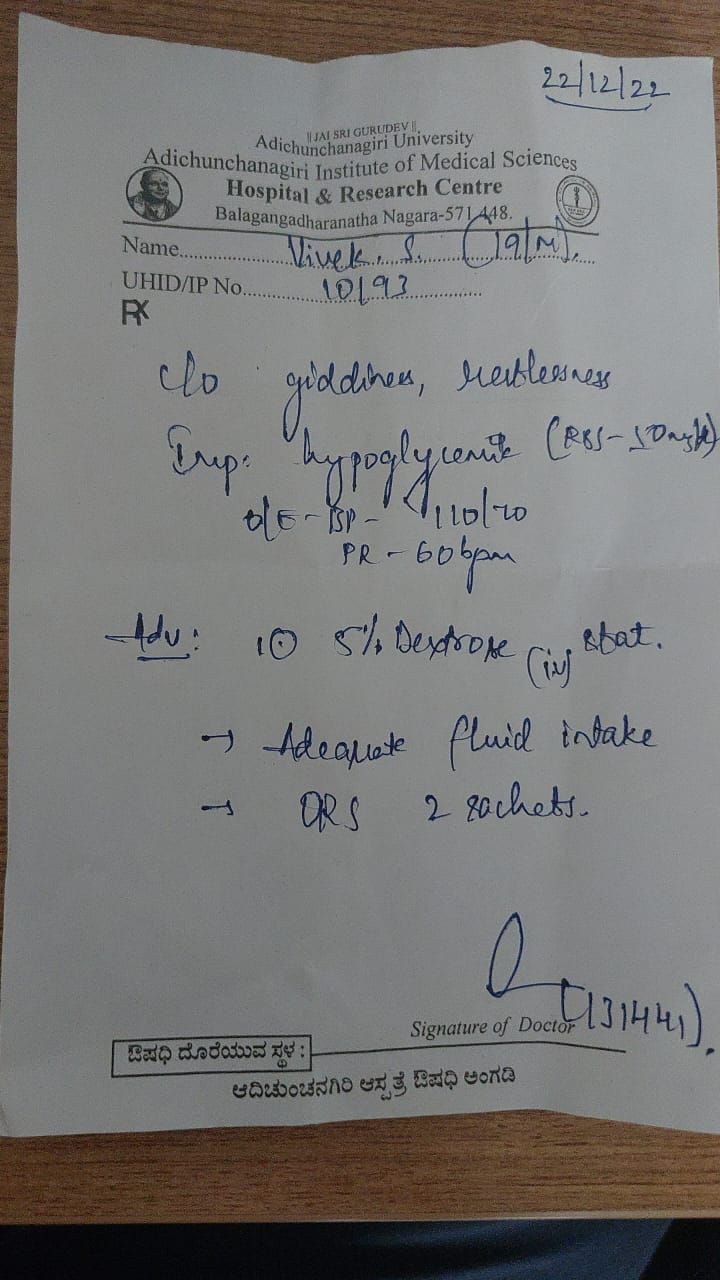 22/12/22
|| JAI SRI GURUDEV ||
Adichunchanagiri University
Adichunchanagiri Institute of Medical Sciences
Hospital & Research Centre
Balagangadharanatha Nagara-571 448.
Name Vivek. S. (19/M).
UHID/IP No. 10193
Rx
c/o giddiness, restlessness
Imp: hypoglycemic (RBS-50mg/dl)
O/E - BP - 110/70
PR - 60bpm
Adv: 5% Dextrose (iv) stat.
→ Adequate fluid intake
→ ORS 2 sachets.
(131441).
Signature of Doctor
ಔಷಧಿ ದೊರೆಯುವ ಸ್ಥಳ :
ಆದಿಚುಂಚನಗಿರಿ ಆಸ್ಪತ್ರೆ ಔಷಧಿ ಅಂಗಡಿ